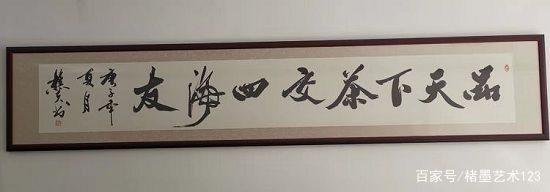 品天下茶交四海友
庚子年
夏月
百家号/楮墨艺术123